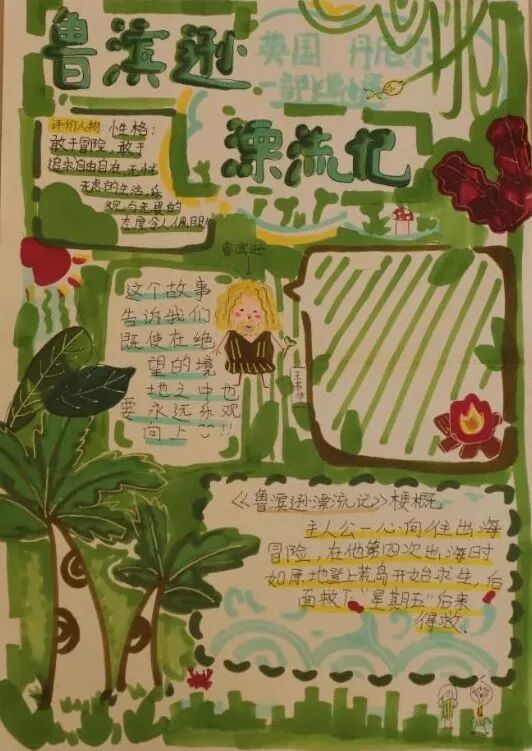 鲁滨逊
英国 丹尼尔
一部长篇小说
漂流记
评价人物 性格:
敢于冒险,敢于
追求自由自在,无忧
无虑的生活,乐
观,与无畏的
态度令人佩服!
鲁滨逊
这个故事
告诉我们
既使在绝
望的境
地之中也
要永远乐观
向上!!
《鲁滨逊漂流记》梗概
主人公一心向往出海
冒险,在他第四次出海时
如原地登上荒岛开始求生,后
面救下"星期五"后来
得救.